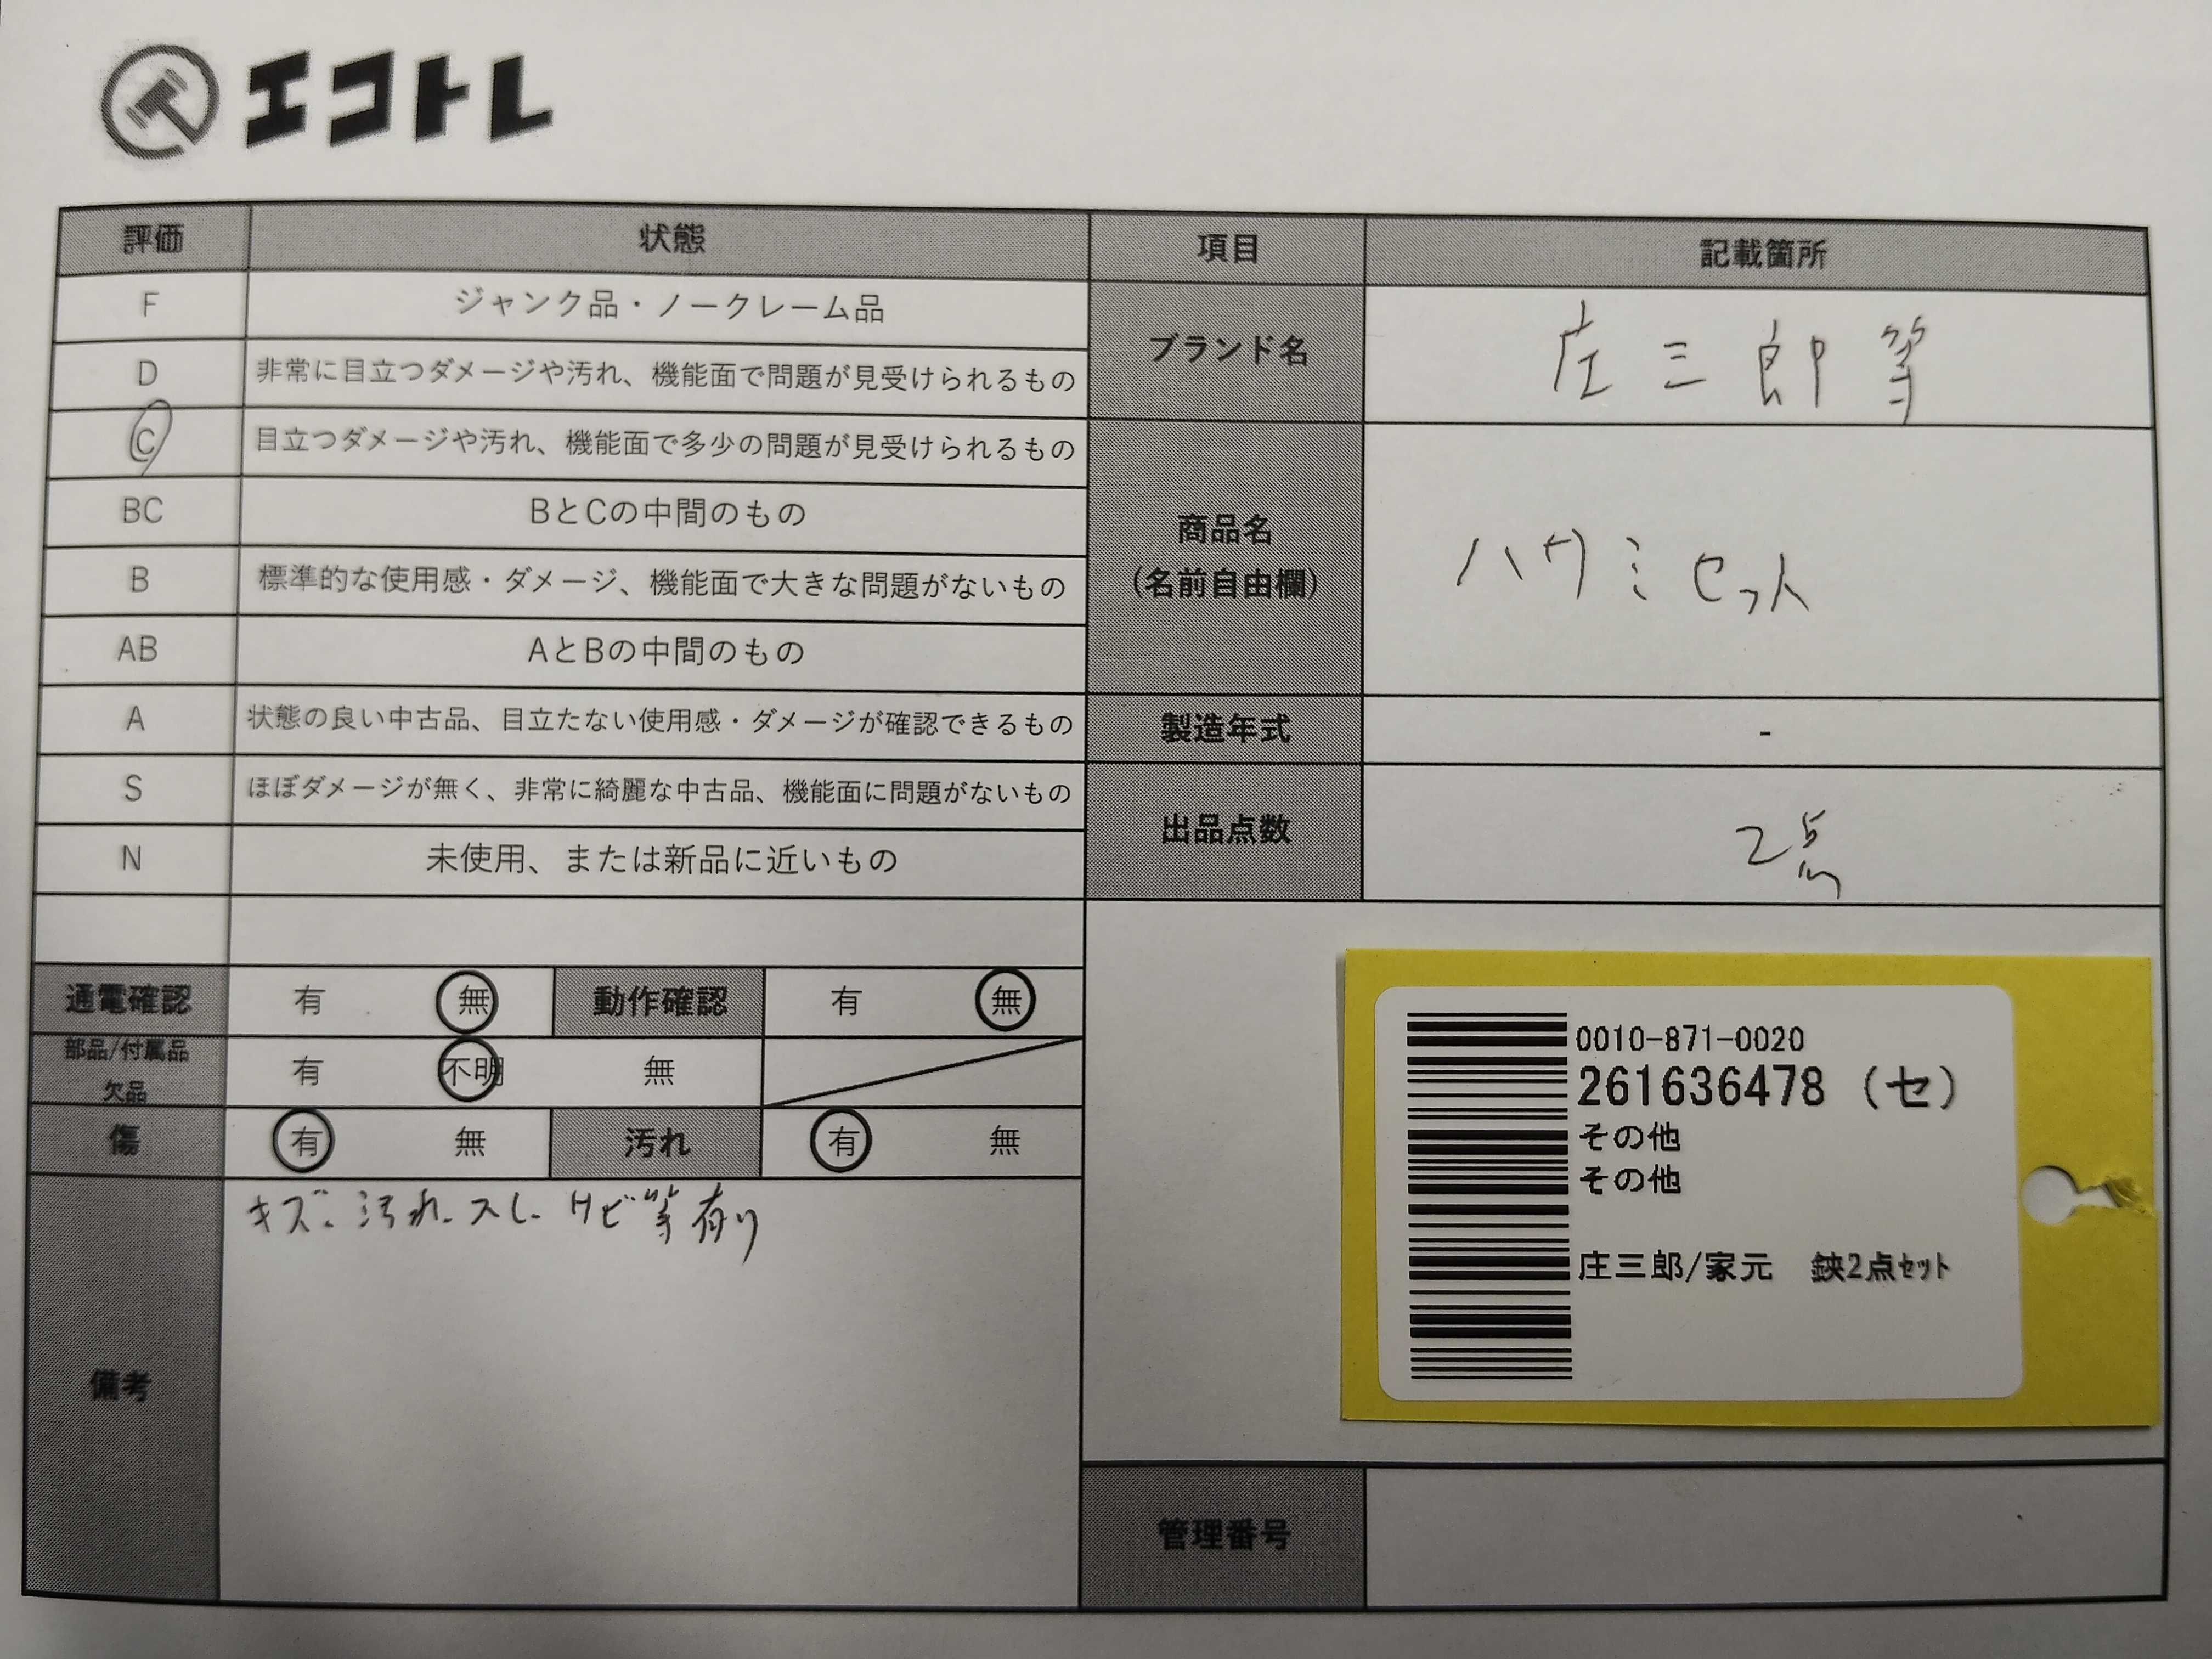 エコトレ
評価 状態 項目 記載箇所
F ジャンク品・ノークレーム品
D 非常に目立つダメージや汚れ、機能面で問題が見受けられるもの
C 目立つダメージや汚れ、機能面で多少の問題が見受けられるもの
BC BとCの中間のもの
B 標準的な使用感・ダメージ、機能面で大きな問題がないもの
AB AとBの中間のもの
A 状態の良い中古品、目立たない使用感・ダメージが確認できるもの
S ほぼダメージが無く、非常に綺麗な中古品、機能面に問題がないもの
N 未使用、または新品に近いもの
ブランド名 庄三郎等
商品名
(名前自由欄)
ハサミセット
製造年式 -
出品点数 2点
通電確認 有 無 動作確認 有 無
部品/付属品
欠品
有 不明 無
傷 有 無 汚れ 有 無
備考
キズ、汚れ、スレ、サビ等有り
0010-871-0020
261636478 (セ)
その他
その他
庄三郎/家元 鋏2点ｾｯﾄ
管理番号